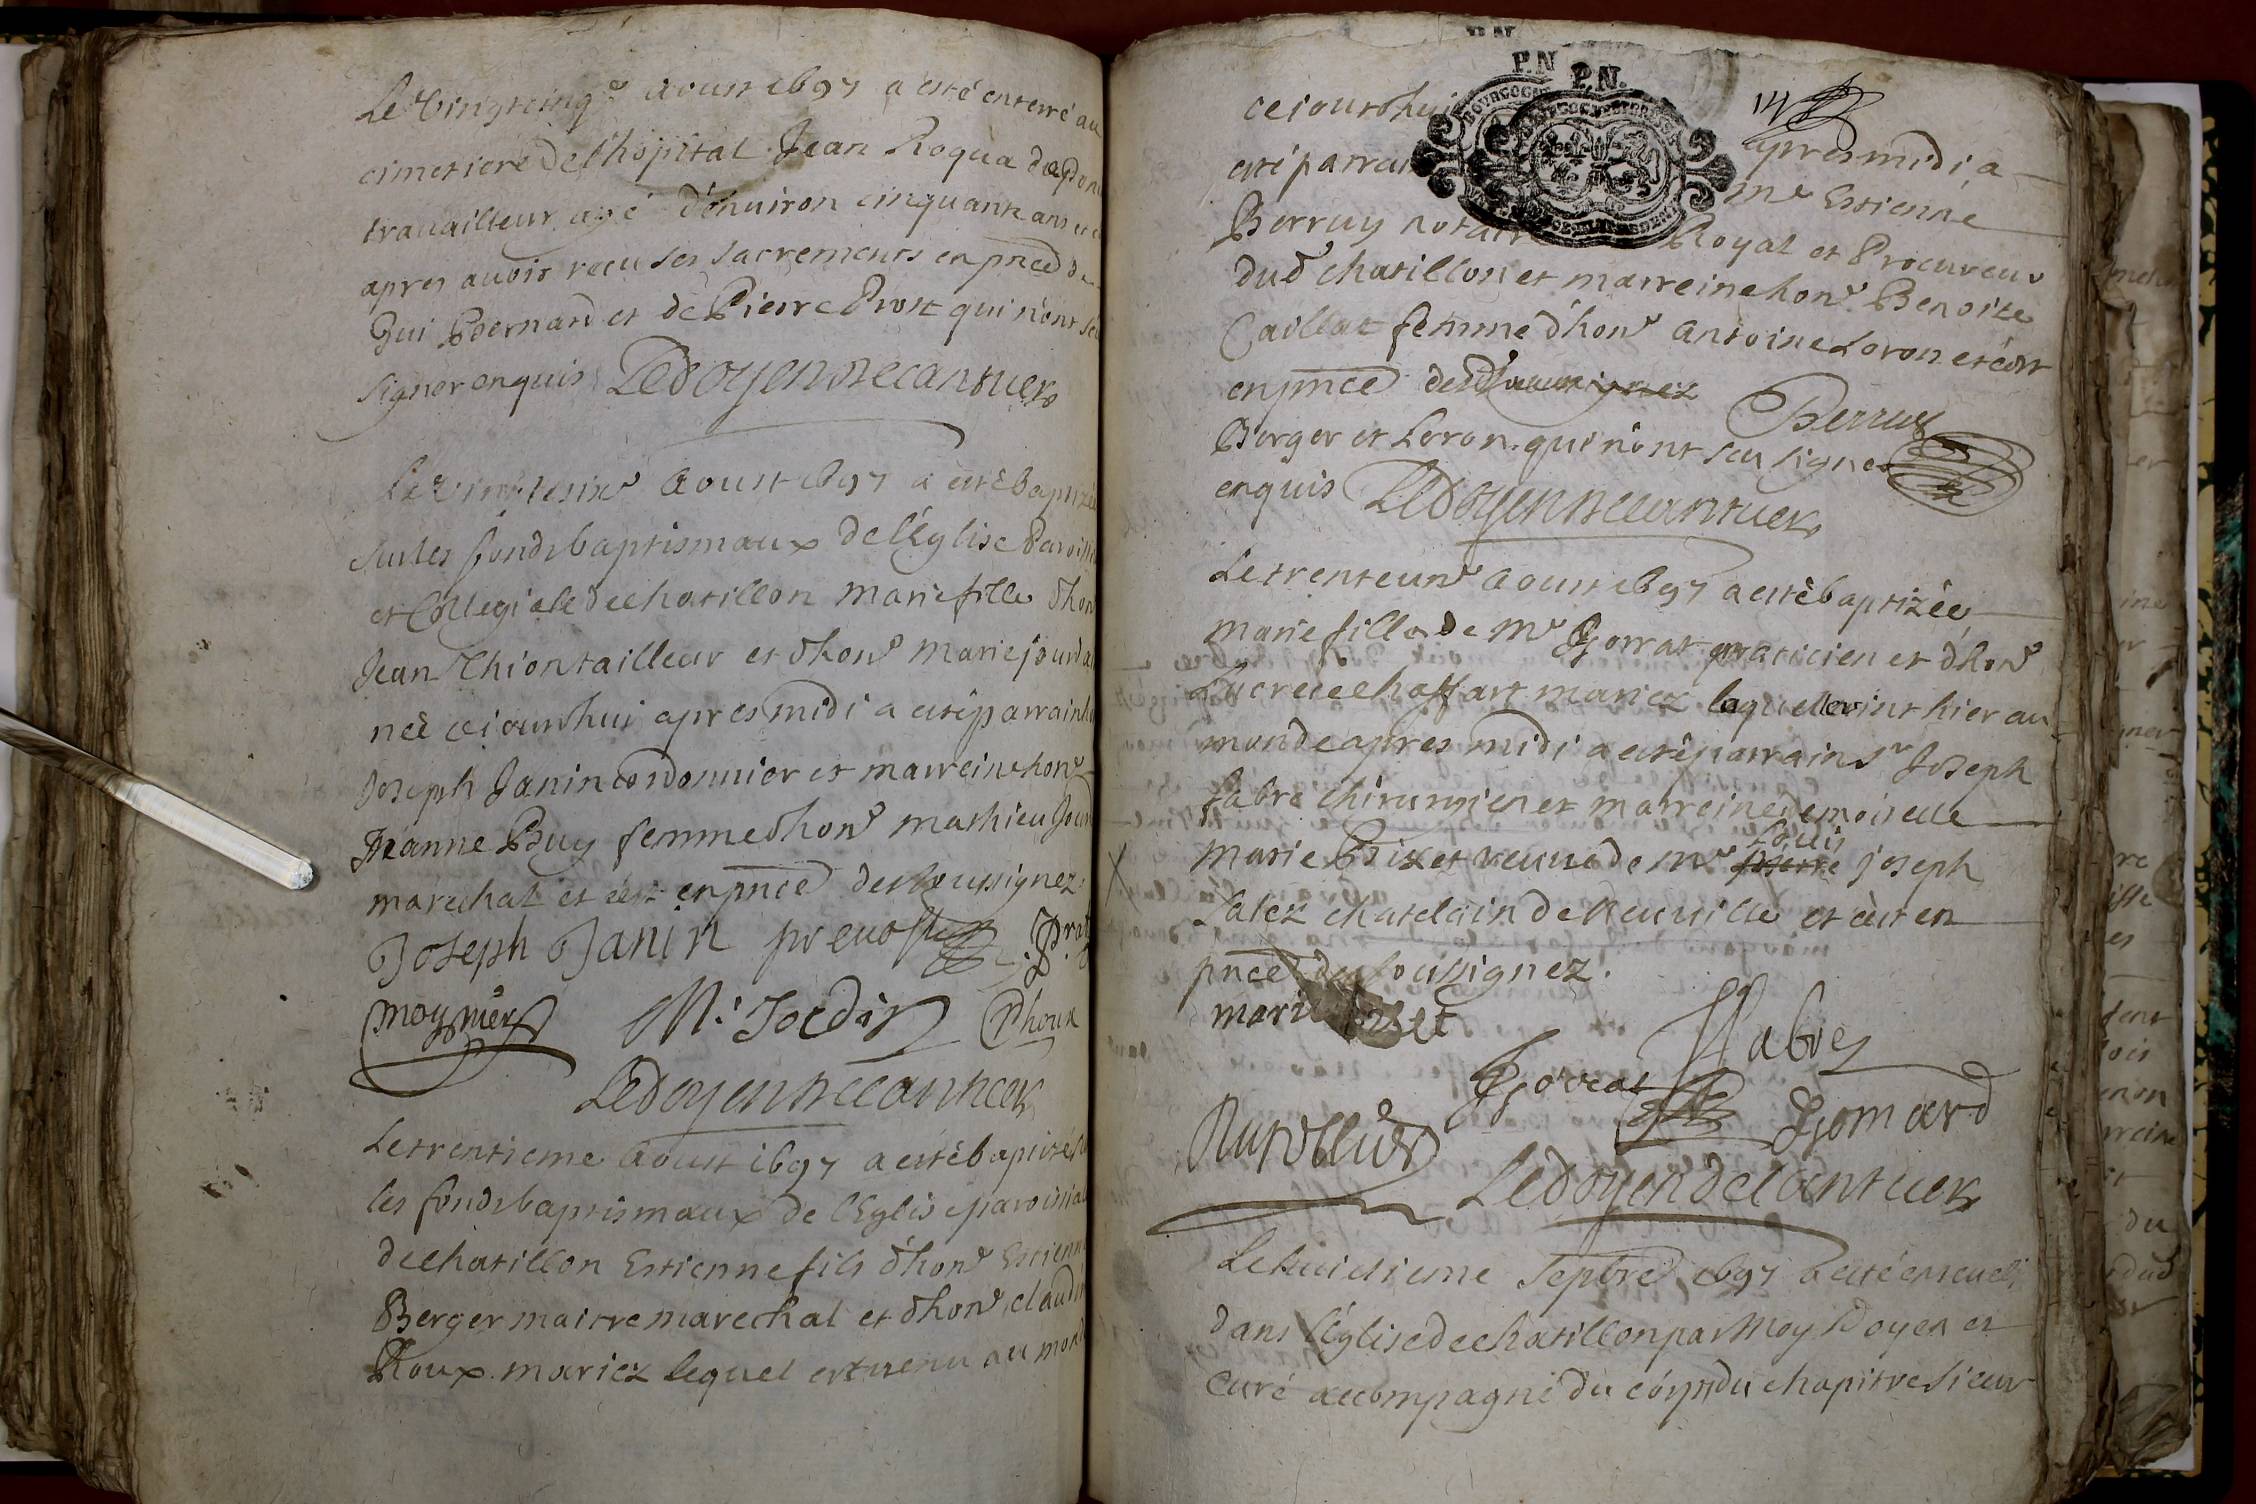 Le vingtcinq.e aoust 1697 a esté enterré au
cimetiere de l'hopital Jean Roqua du Pon
travailleur agé d'environ cinquante ans
apres avoir receu ses sacrements en pnce de
Gui Bernard et de Pierre Prost qui n'ont sceu
signer enquis Le doyen Decantuer
Le vingtesixe aoust 1697 a esté baptizée
sur les fonds baptismaux de l'Eglise Paroissi
et Collegiale de chatillon marie fille d'hon
Jean Chion tailleur et d'hone marie jourda
née ce jourdhui apres midi a esté parrain ho
Joseph Janin cordonnier et marreine hone
Jeanne Buy femme d'hone mathieu Jour
marechal et c'est en pnce des soussignez
Joseph Janin prevost Prat
moynier M. Jordin Dhoux
Le doyen Decantuer
Le trentieme aoust 1697 a esté baptisé su
les fonds baptismaux de l'Eglise paroissial
de chatillon Estienne fils d'hone Estienne
Berger maitre marechal et d'hone claudi
Roux mariez lequel est venu au mond
P.N. P.N.
ce jourdhui apres midi a
esté parrain me Estienne
Berruy notaire Royal et Procureur
dud chatillon et marreine hone Benoite
Caillat femme d'hone antoine Loron et c'est
en pnce desd
Berruy
Berger et Loron qui n'ont sceu signer
enquis Le doyen Decantuer
Le trenteune aoust 1697 a esté baptizée
marie fille de Mr Gorrat praticien et d'hone
Lucrece chaffart mariez laquelle vint hier au
monde apres midi a esté parrain Sr Joseph
fabre chirurgien et marreine demoiselle
Louis
marie Brisset veuve de Mr pierre joseph
Salez chatelain de Neuville et c'est en
pnce des soussignez.
marie Briset
Fabre
Gorrat
Gomard
Le doyen Decantuer
Le huictieme Septbre 1697 a esté enseveli
dans l'Eglise de chatillon par Moy Doyen et
Curé accompagné du corps du chapitre sieur